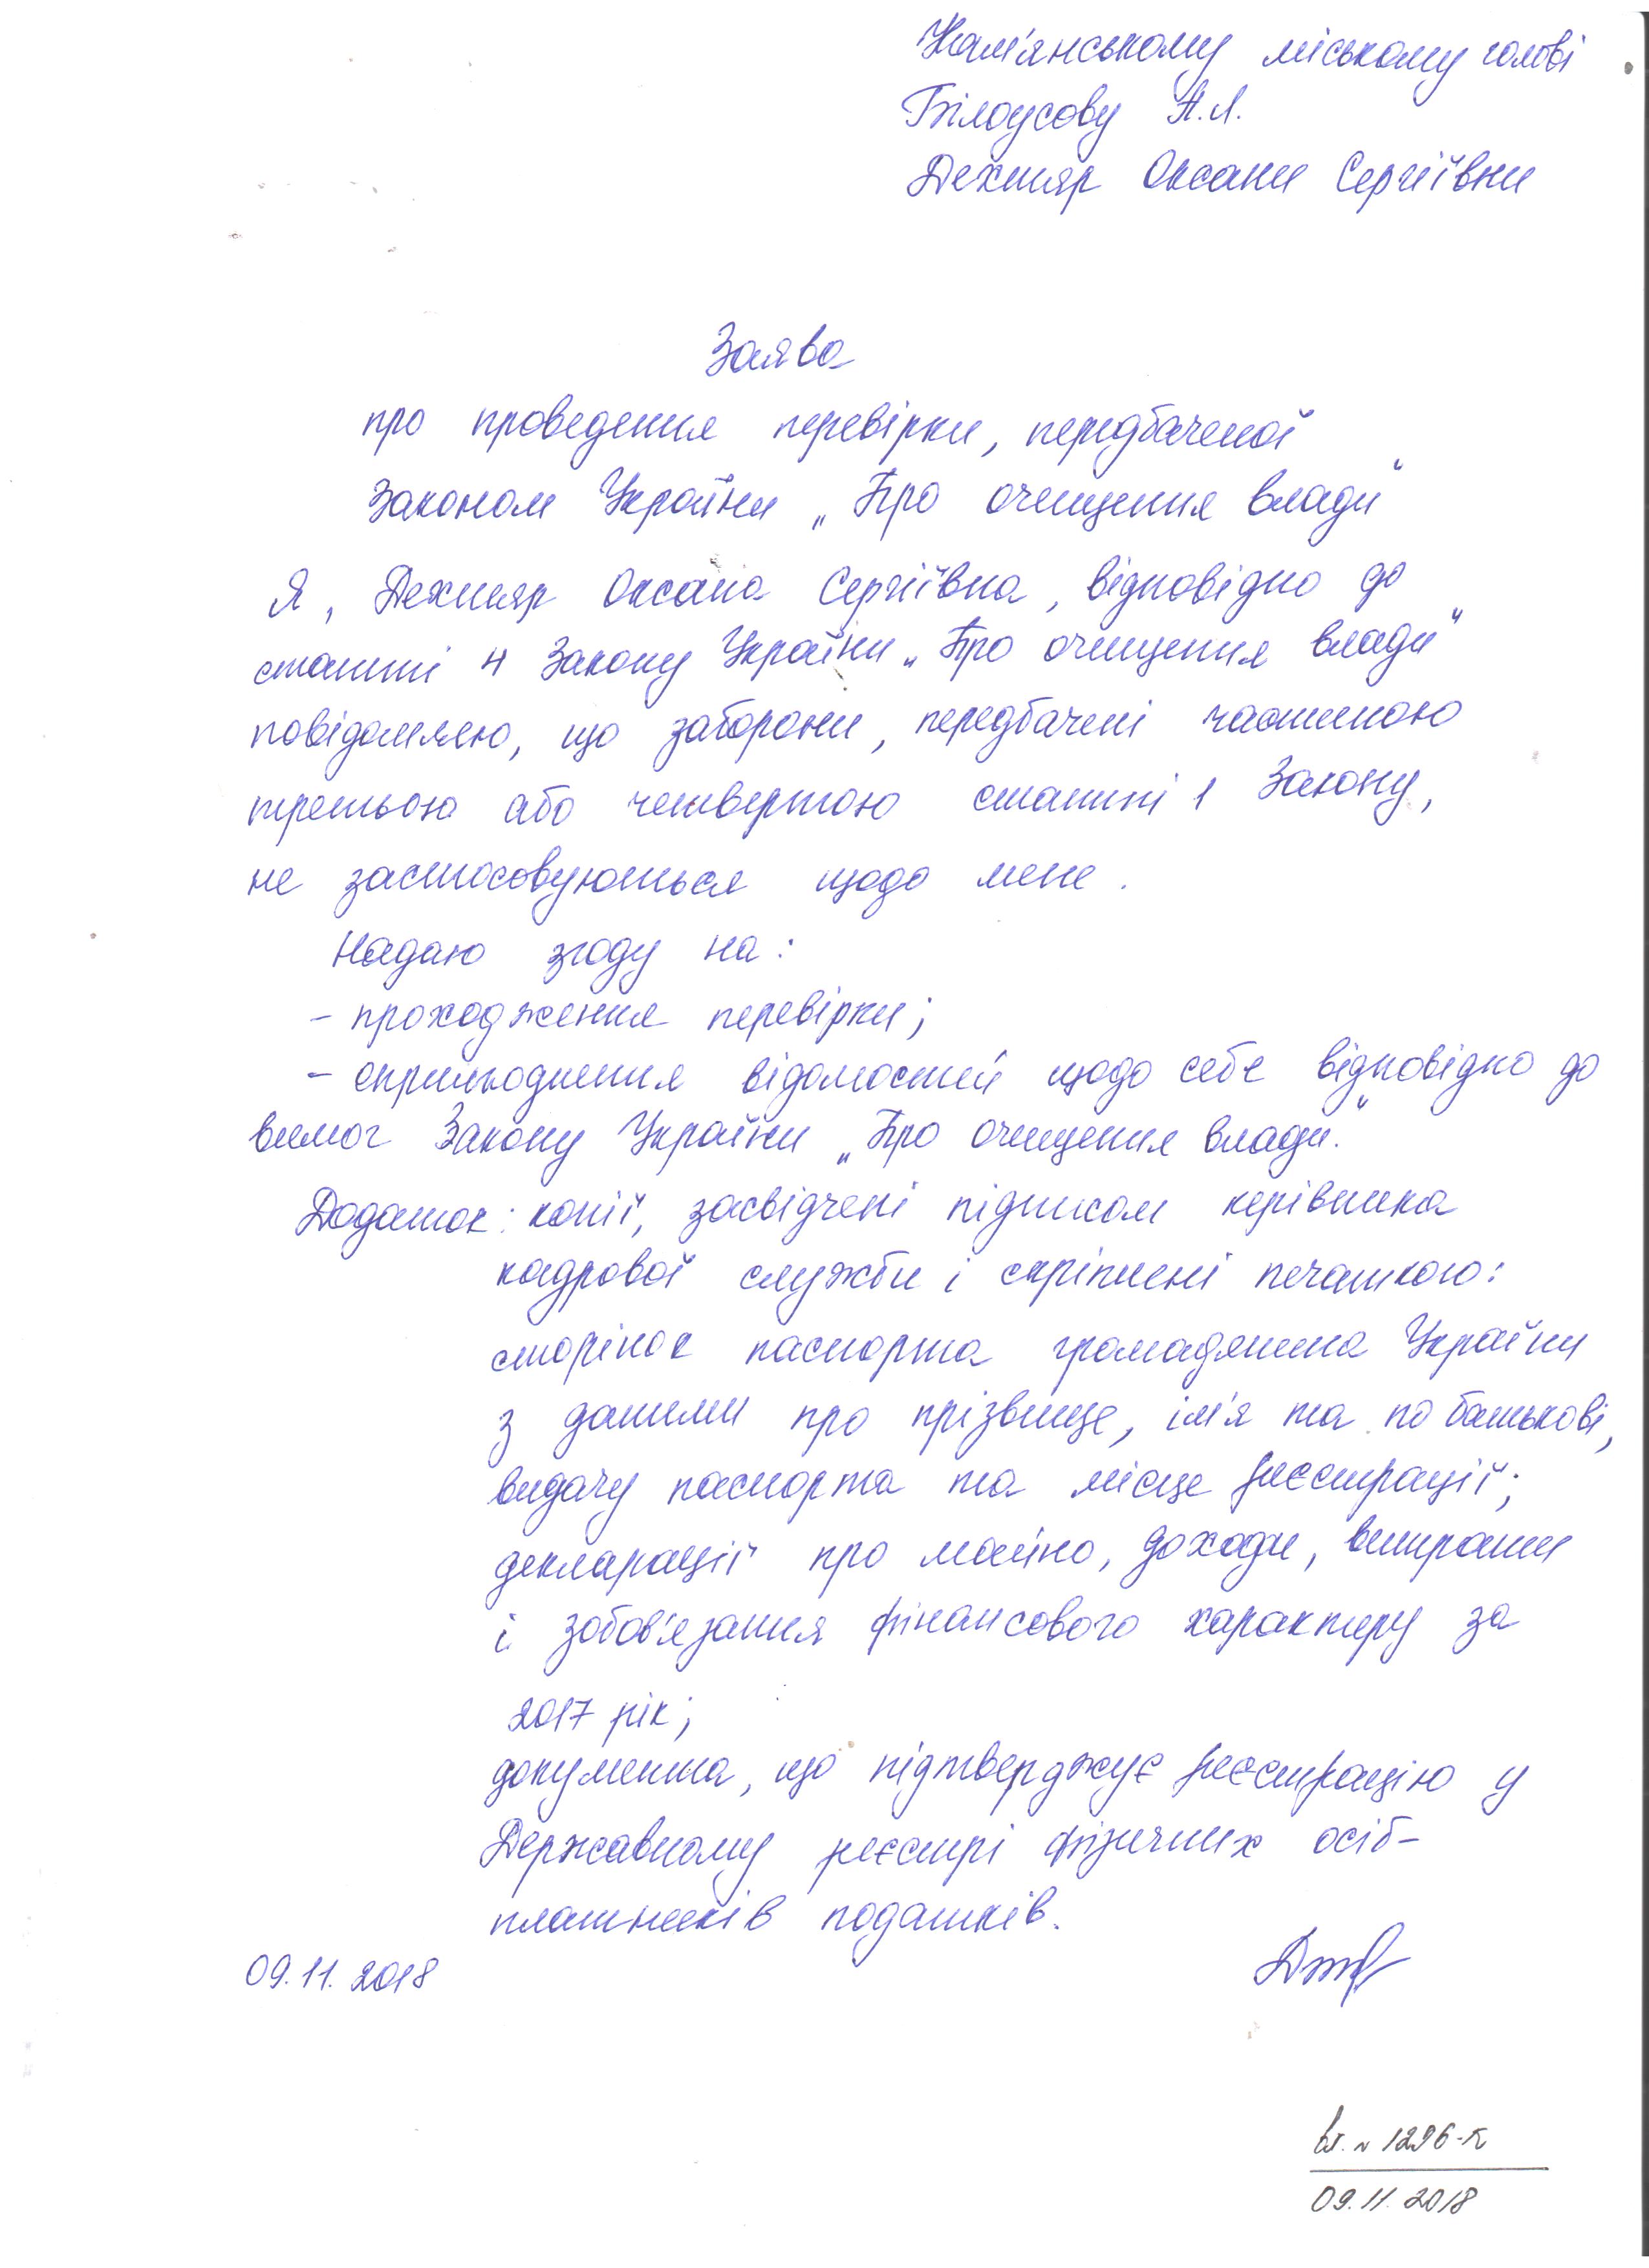 Кам'янському міському голові
Білоусову А.Л.
Дехтяр Оксани Сергіївни
Заява
про проведення перевірки, передбаченої
Законом України „Про очищення влади"
Я, Дехтяр Оксана Сергіївна, відповідно до
статті 4 Закону України „Про очищення влади"
повідомляю, що заборони, передбачені частиною
третьою або четвертою статті 1 Закону,
не застосовуються щодо мене.
Надаю згоду на:
- проходження перевірки;
- оприлюднення відомостей щодо себе відповідно до
вимог Закону України „Про очищення влади".
Додаток: копії, засвідчені підписом керівника
кадрової служби і скріплені печаткою:
сторінок паспорта громадянина України
з даними про прізвище, ім'я та по батькові,
видачу паспорта та місце реєстрації;
декларації про майно, доходи, витрати
і зобов'язання фінансового характеру за
2017 рік;
документа, що підтверджує реєстрацію у
Державному реєстрі фізичних осіб-
платників податків.
09.11.2018
1296-к
09.11.2018